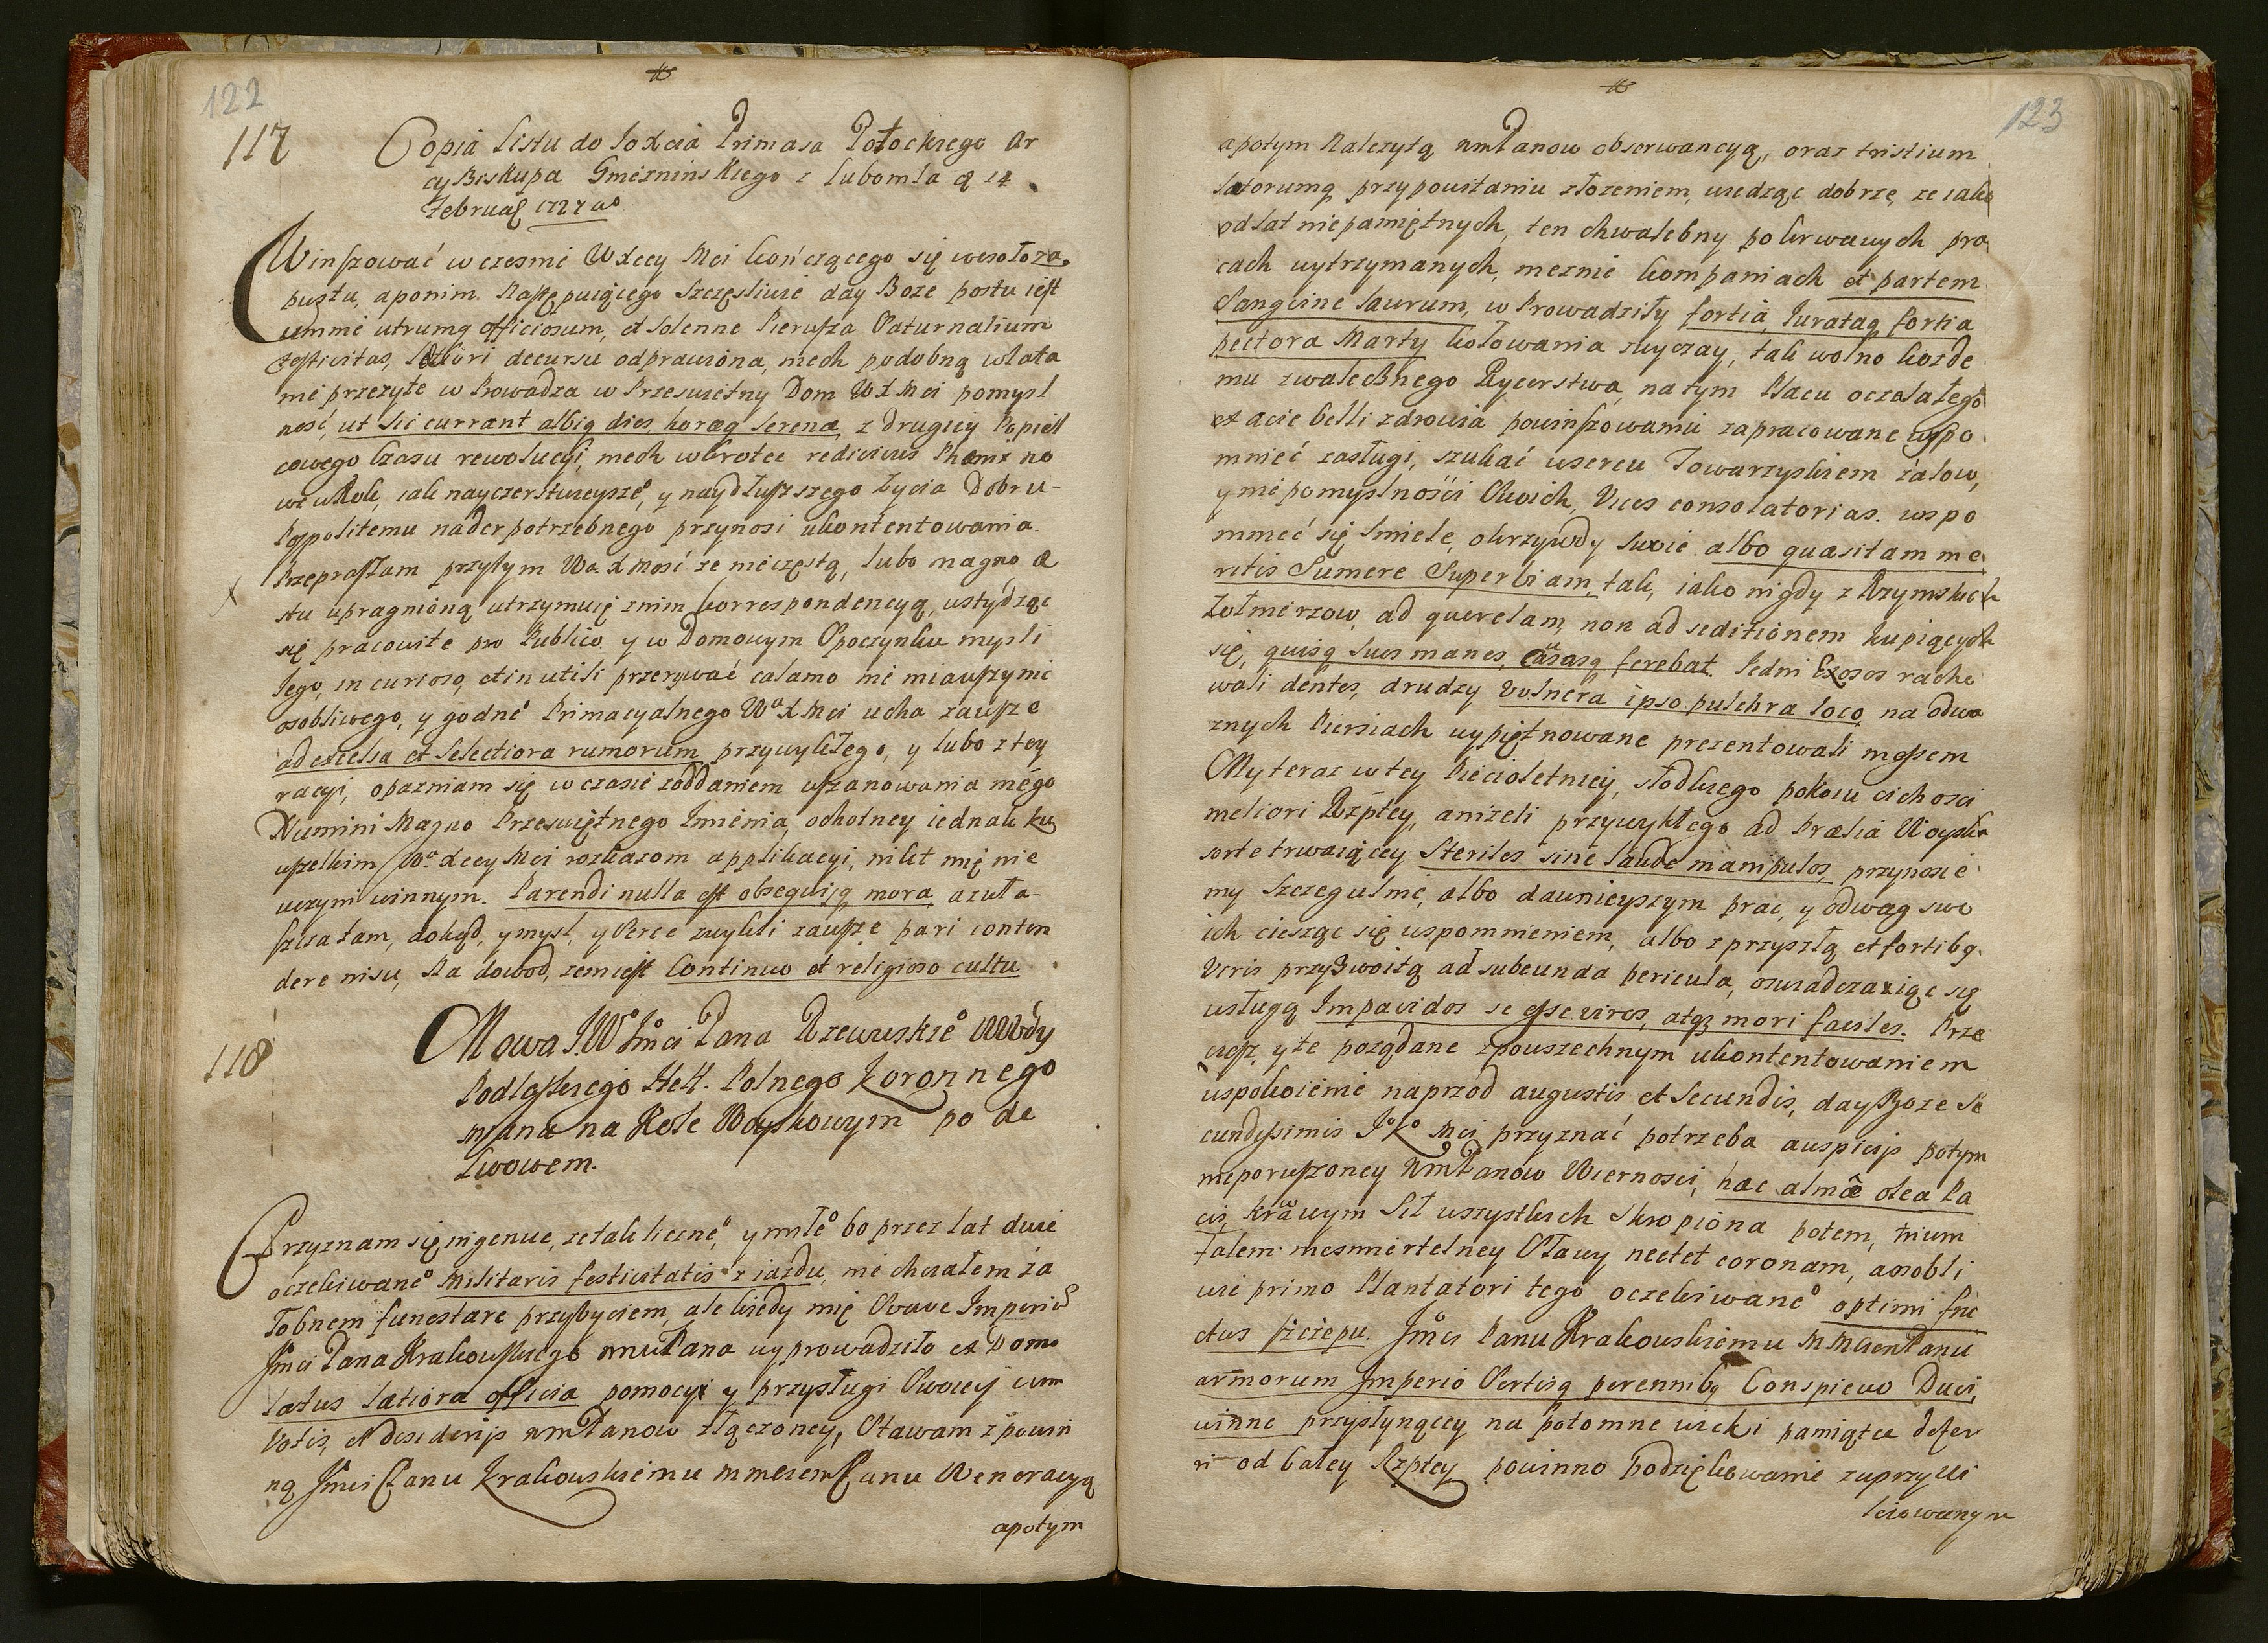 122
117
Copia Listu do Jo Xcia Primasa Potockiego Ar
cyBiskupa Gniezninskiego z Lubomla
Februar
Winszować wczesnie WXcey Mci kończącego się wesoło za
pustu, aponim następuiącego Szczęsliwie day Boze postu iest
umnie utrumq officiosum, et solenne Pierusza Saturnalium
festivitas, decursu odprawiona, niech podobną wlata
nie przezyte wProwadza wPrzeswietny Dom WX Mci pomysl
ność, ut sic currant albiq dies, horaeq Serenae z drugiey Popiel
cowego Czasu rewolucyi, niech wkrotce redivivus Phaenix no
we ukole, iak nayczerstwieysze°, y naydłuszszego Zycia Dobru-
Pospolitemu nader potrzebnego przynosi ukontentowania.
Przepraszam przytym Wa. X Mość ze nieczęstą, lubo magno ae
stu upragnioną utrzymuię znim korrespondencyą, ustydząc
się pracowite pro Publico y w Domowym Opoczynku mysli
Jego, in curioso, et inutili przerywać calamo nie miauszynie
osobliwego, y godne° Primacyalnego Wa X Mci ucha zausze
ad excelsa et Selectiora rumorum przywykłego, y lubo z tey
racyi, opazniam się wczasie zoddaniem uszanowania mego
Numini Magno Przeswiętnego Imienia, ochotney iednak ku
uszelkim Wa. Xcey Mci rozkazom applikacyi, nikt mię nie
uczyni winnym. Parendi nulla est obsequiiq mora, azuła-
szcza tam, dokąd, y mysl, y Serce zwykli zausze pari conten
dere nisu, Na dowod, zemiest Continuo et religioso cultu.
118
Mowa J.W Jmci Pana Rzewuskie° Wdy
Podlaskiego Hett. Polnego Koronnego
miana na Kole Woyskowym po de
Lwowem.
Przyznam się ingenue, ze tak liczne°, y miłe° bo przez lat dwie
oczekiwane° militaris festivitatis ziazdu, nie chciałem ża
łobnem funestare przybyciem, ale kiedy mię Suave Imperiũ
Jmci Pana Krakowskiego mmPana uyprowadziło ex Domo
latus laetiora officia pomocy y przysługi Swoiey cum
Votis, et desiderijs wmPanow złączoney, Stawam z powin
ną Jmci Panu Krakowskiemu mmciemPanu Weneracyą
apotym
123
apotym Nalezytą wmPanow obserwancyą, oraz tristium
latorumq przypowitaniu złozeniem, wiedząc dobrze, ze iako
od lat niepamiętnych, ten chwalebny po krwawych pra
cach wytrzymanych, meznie kompaniach et partem
Sanguine laurum, wProwadziły fortia, Iurataq fortia
pectora Marty kołowania zwyczay, tak wolno kozde
mu zwalecznego Rycerstwa, na tym Placu oczekałego
ex acie belli zdrowia powinszowaniu zapracowane wspo
mnieć zasługi, szukać usercu Towarzyskiem żalow,
y nie pomyslności Swoich, Vices consolatorias. wspo
mnieć się Smiele, okrzywdy swoie albo quaesitam me
ritis Sumere Superbiam, tak, iako nigdy z Rzymskich
Zołnierzow, ad querelam, non ad seditionem kupiących
się, quisq suos manes, causasq ferebat. Jedni Exosos rache
wali dentes, drudzy Volnera ipso pulchra loco na odwa
znych Piersiach uypiętnowane prezentowali messem
My teraz wtey Pięcioletniey, słodkiego pokoiu cichosci
meliori Rzptey, anizeli przywykłego ad Praelia Woyska
sorte trwaiącey Steriles sine laude manipulos, przynosie
my Szczegulnie, albo daunieyszym prac, y odwag swo
ich ciesząc się uspomnieniem, albo z przyszłą et fortibq
Viris przyzwoitą ad subeunda pericula, oswiadczaiąc się
usługą Impavidos se esse viros, atqz mori faciles. Prze
ciesz y te poządane zpowszechnym ukontentowaniem
uspokoienie naprzod augustis, et Secundis, dayBoze Se
cundissimis J°K° Mci przyznać potrzeba auspicijs potym
nieporuszoney wmPanow Wiernosci, haec almae olea Pa
cis, krwawym Sił uszystkich Skropiona potem, trium
falem niesmiertelney Sławy nectet coronam, aosobli
wie primo Plantatori tego oczekiwane° optimi fru
ctus szczepu. Jmci Panu Krakowskiemu MMciemPanu
armorum Imperio Vertisq perennibq Conspicuo Duci,
winne przysłynącey na potomne wieki pamiątce defer
ri od całey Rzptey powinno Podziękowanie zuprzywi
leiowanym